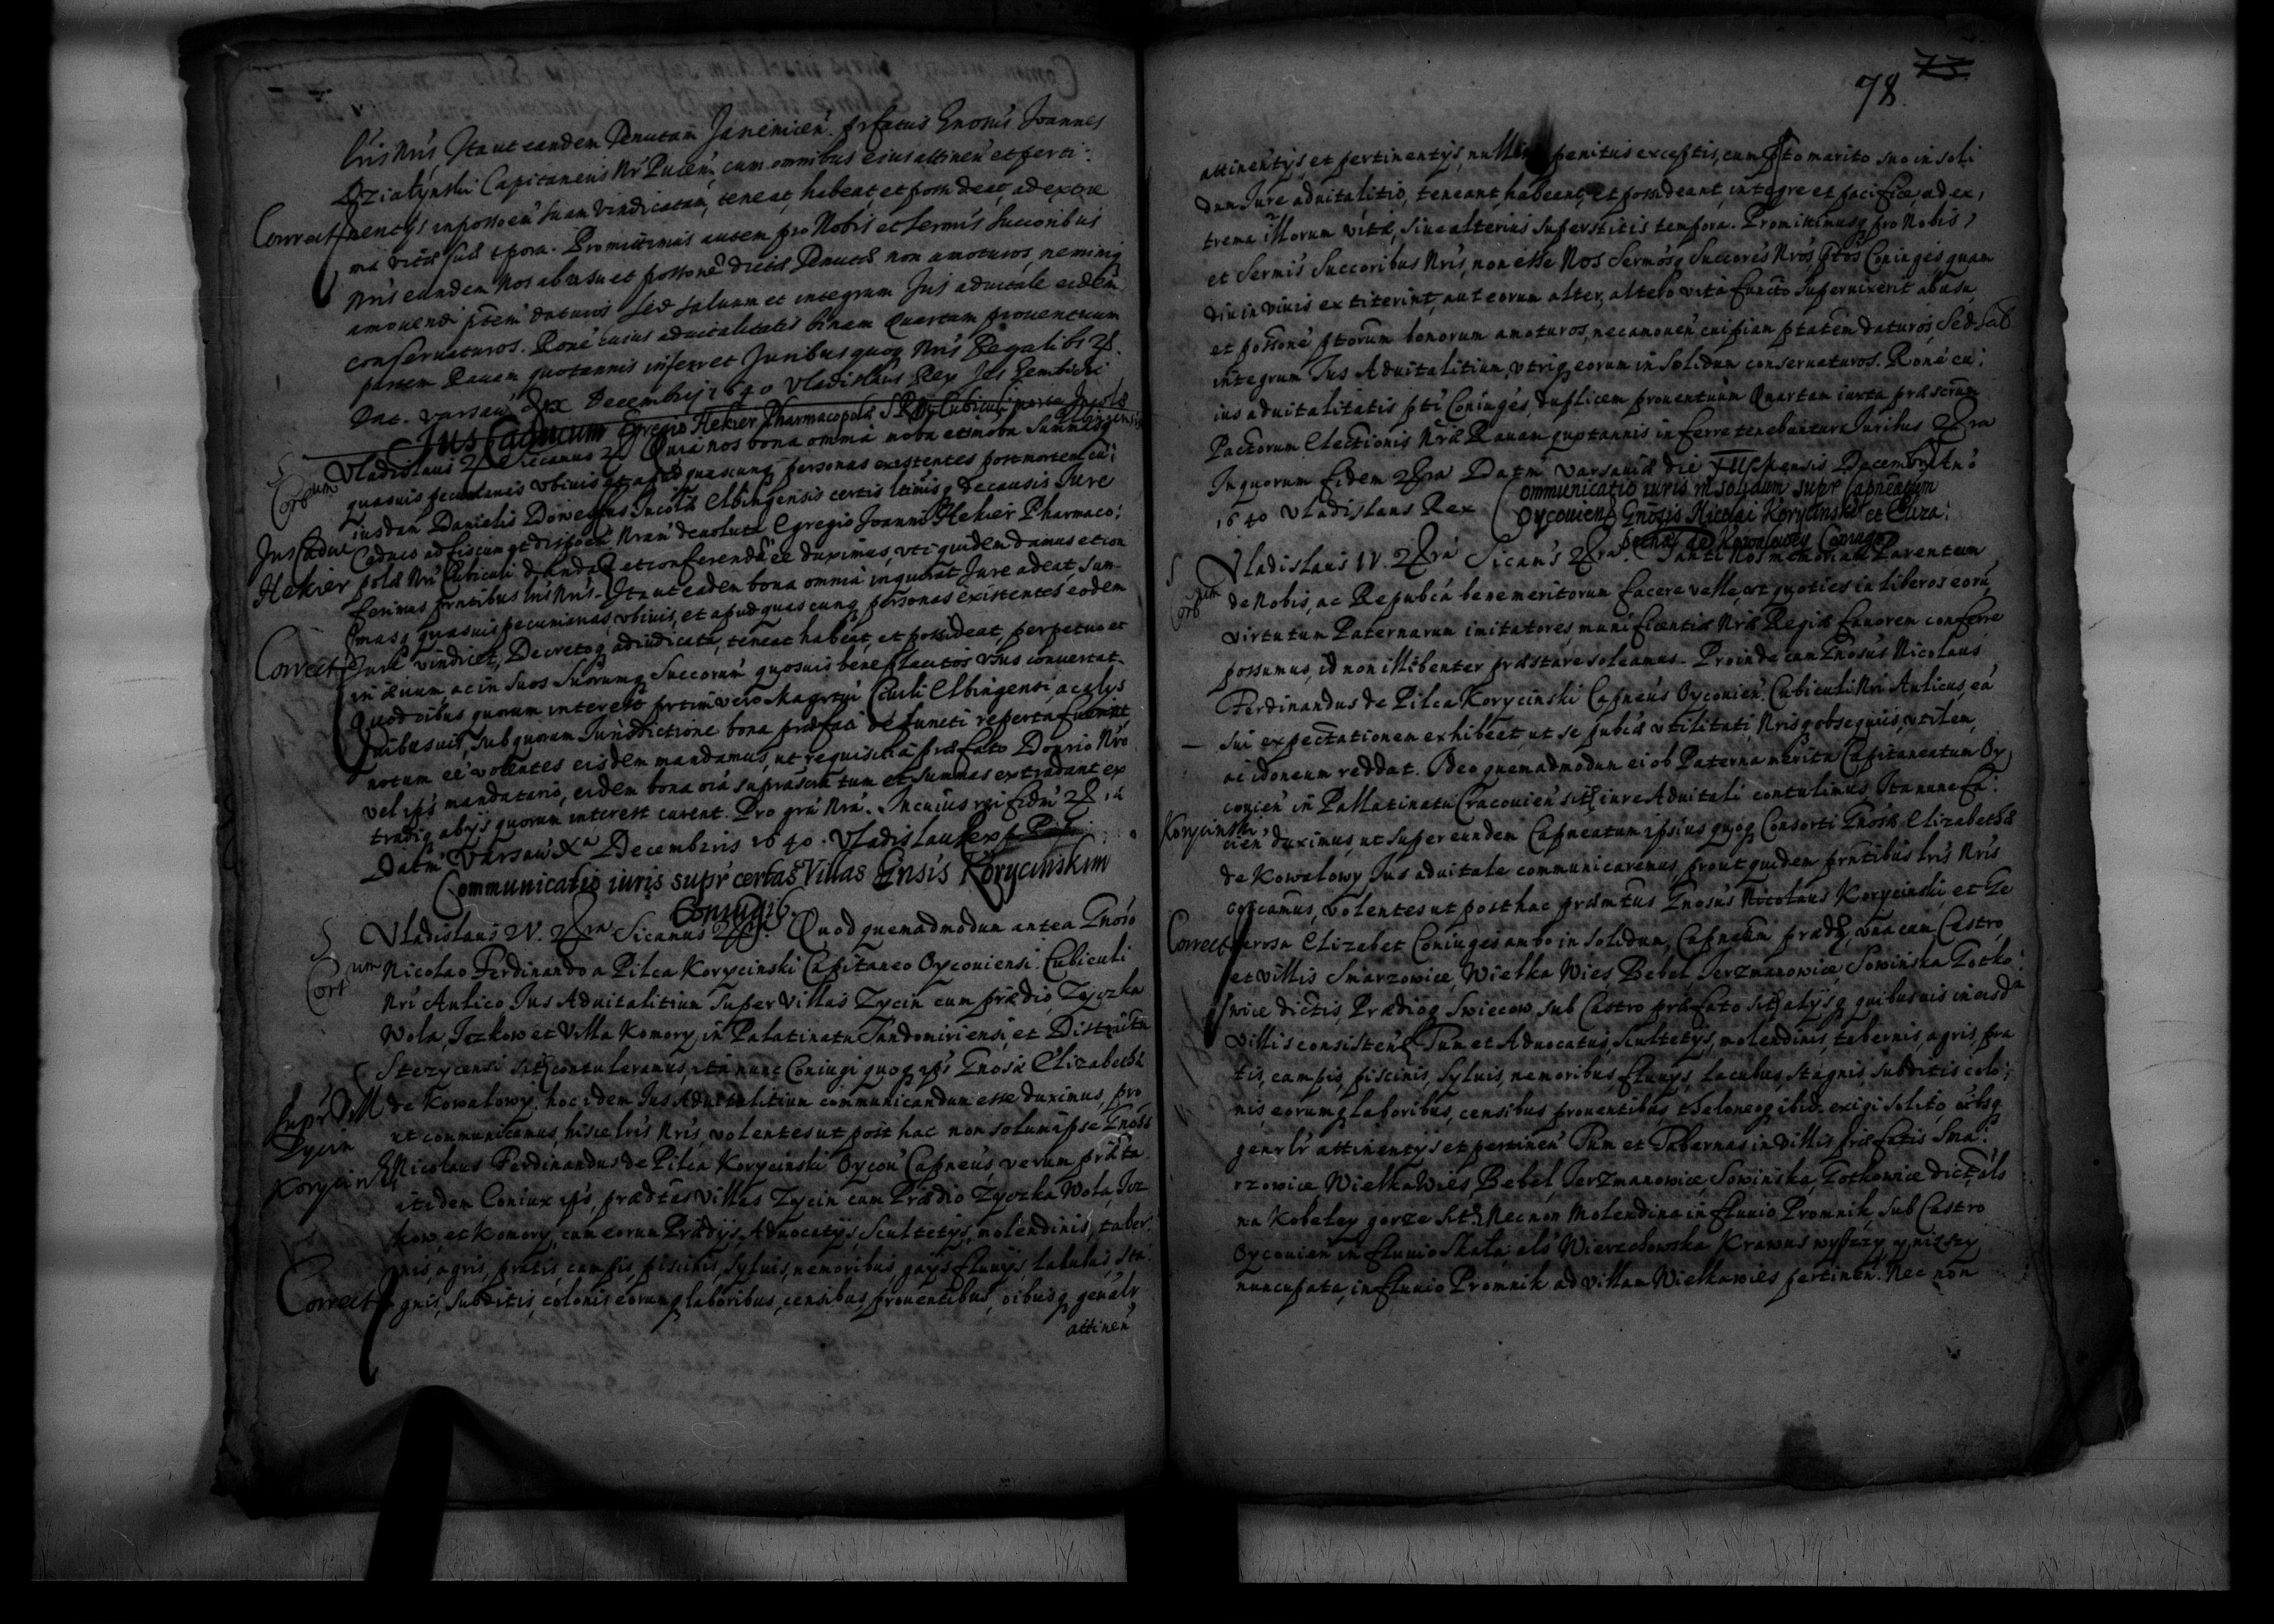 lris Nris, Ita ut eandem Tenutam Janinicen. prfatus Gnosus Joannes
Dzialÿnski Capitaneus Nr Pucen. cum omnibus eius attinen et perti:
nencÿs in possoem suam vindicatam, teneat, habeat, et possideat, ad extre
ma vitæ suæ tpora. Promittimus autem pro Nobis et Sermis Succoribus
Nris eundem Nos ab usu et possone dictæ Tenutæ non amoturos, neminiq
amovendi ptem daturos sed saluum et integrum Jus aduitale eidem
conservaturos. Rone cuius advitalitatis binam Quartam prouentuum
partem Rauam quotannis inferret Juribus quoq Nris Regalibs
Dat. Varsaw Decembrÿ 1640 Vladislaus Rex Jas Gembicki
Jus Caducum Egregio Hekier Pharmacopolæ S R Cubiculi
Vladislaus Siccanus Quia nos bona omnia moba et imoba Summasq
quasuis pecuniarias ubiuis et apud quascunq personas existentes post mortem cu:
iusdam Danielis Incolæ Elbingensis certis ltimisq de causis Jure
Caduco ad fiscum et dispoem Nram devoluta Egregio Joanni Hekier Pharmaco:
Jus Caduc
Hekier
polæ Nri Cubiculi danda et conferenda ee duximus, uti quidem damus et con
ferimus prntibus lris Nris. Ita ut eadem bona omnia inquirat Jure adeat, Sum
masq quasuis pecuniarias, ubiuis, et apud quascunq personas existentes eodem
Correct
Jure vindicet, Decretoq adiudicata, teneat habeat, et possideat, perpetuo et
in æuum, ac in Suos Suorumq Succorum quosuis beneplacitos usus convertat.
Quod oibus quorum interest prtim vero Magrtui Ciuli Elbingensi, ac alÿs
quibusuis, sub quorum Jurisdictione bona præfati defuncti reperta fuerint
notum ee volentes eisdem mandamus, ut requisiti a præfato Donrio Nro
vel ips mandatario, eidem bona oia suprascriptum et Summas extradant ex
tradiq ab ijs quorum interest curent. Pro gra Nra. In cuius rei fidm
Datm Varsaw Xa Decembris 1640. Vladislaus Rex
Communicatio iuris supr certas Villas Gnsis Korycinskim
Coniugib.
Vladislaus IV. Sicanus Quod quemadmodum antea Gnoso
Nicolao Ferdinando a Pilca Korycinski Capitaneo Oycouiensi. Cubiculi
Nri Aulico Jus Aduitalitium Super Villas Zycin cum prædio, Zyczka
Wola, Jczkow et Villa Komory, in Palatinatu Sandomiriensi, et Districtu
Stezycensi sit contuleramus, ita nunc Coniugi quoq ips Gnosæ Elizabethæ
de Kowalowy, hoc idem Jus Aduitalitium communicandum esse duximus, pro
ut communicamus, hisce lris Nris, volentes ut post hac non solum ipse Gnoss
Korycin
Nicolaus Ferdinandus de Pilca Korycinski Oycou Capneus, verum præfta
itidem Coniux ips, prædtas villas Zycin cum Prædio Zyczka Wola, Jcz
kow, et Komory, cum eorum Prædÿs, Aduocatÿs, Scultetÿs, molendinis, taber
nis, agris, pratis, campis, piscinis, syluis, nemoribus, gaÿs, fluuÿs, lacubus, sta
Correct
gnis, subditis, colonis, eorumq laboribus, censibus, prouentibus, oibusq genalr
attinen
78
attinentÿs, et pertinentÿs, nullis penitus exceptis, cum pto marito suo in soli
dum Jure aduitalitio, teneant habeant, et possideant, integre et pacifice, ad ex,
trema illorum vitæ, siue alterius superstitis tempora. Promittimusq pro Nobis,
et Sermis Succoribus Nris, non esse Nos Sermosq Succores Nros ptos Coniuges quam
diu in viuis extiterint, aut eorum alter, altero vita functo superuixerit ab usu
et possone ptorum bonorum amoturos, nec amouen cuipiam ptatem daturos, Sed sal
integrum Jus Aduitalitium, utriq eorum in solidum conservaturos. Rone cu:
ius aduitalitatis pti Coniuges, duplicem prouentuum Quartam iuxta præscrm
Pactorum Electionis Nræ Rauam quotannis inferre tenebuntur Juribus
In quorum fidem Datm Varsauiæ die Mensis Decembrÿ An:
1640 Vladislaus Rex
Communicatio iuris in solidum supr Capneatum
Oycouien Gnosis Nicolai Korycinski et Eliza:
bethæ de Kowalowey Coniugb
Vladislaus IV. Sicans Tanti Nos memoriam Parentum
de Nobis, ac Repubca benemeritorum facere velle, ut quoties in liberos eoru,
virtutum Paternarum imitatores munificentiæ Nræ Regiæ fauorem conferre
possumus, id non illibenter præstare soleamus. Proinde cum Gnosus Nicolaus
Ferdinandus de Pilca Korycinski Capneus Oyconien. Cubiculi Nri Aulicus, ea
sui expectationem exhibeat, ut se pubcæ utilitati, Nrisq obsequiis, utilem,
ac idoneum reddat. Ideo quemadmodum ei ob Paterna merita Capitaneatum Oy
couien in Pallatinatu Cracouien sit iure Aduitali contulimus, Ita nunc fa:
Korycinski
cien duximus, ut super eundem Capneatum ipsius quoq Consorti Gnosæ Elizabethæ
de Kowalowy Jus aduitale communicaremus, prout quidem prntibus lris Nris
cocamus, volentes ut posthac præmtus Gnosus Nicolaus Korycinski, et Ge
Correct
nerosa Elizabet Coniuges ambo in solidum, Capneum præd una cum Castro,
et villis Smarzowice, Wielka Wies, Bebel, Jerzmanowice, Sowinska, Gotko:
wice dictis, Prædioq Swiecow, sub Castro præfato sit alÿsq quibusuis in eisdm
villis consisten Tum et Aduocatus, scultetÿs, molendinis, tabernis, agris, pra
tis, campis, piscinis, syluis, nemoribus fluuÿs, lacubus, stagnis, subditis colo:
nis, eorumq laboribus, censibus prouentibus, Theloneoq ibid. exigi solito, oibsq
genrlr attinentÿs et pertinen Tum et Tabernas in villis præfatis Sma:
rzowice, Wielka Wies, Bebel, Jerzmanowice, Sowinska, Gotkowice dict, als
na Kobeley gorze sit. Nec non Molendina in fluuio Promnik sub Castro
Oycouien in fluuio Skala, als Wierzchowska Krawus wyszszy, y nizszy
nuncupata, in fluuio Promnik ad villam Wielkawies pertinen. Nec non